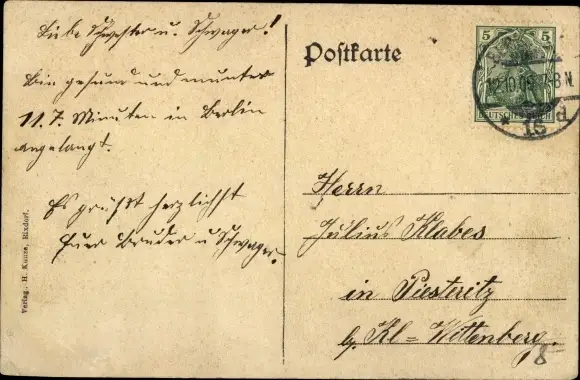 Liebe Schwester u. Schwager!
Bin gesund und munter
11.7. Minuten in Berlin
angelangt.
Es grüßt herzlichst
Euer Bruder u Schwager.
Verlag: H. Kunze, Rixdorf.
Postkarte
5 5
DEUTSCHES REICH
12.10.09. 7-8 N.
* 15 d
Herrn
Julius Klabes
in Piesteritz
by. Kl = Wittenberg.
8